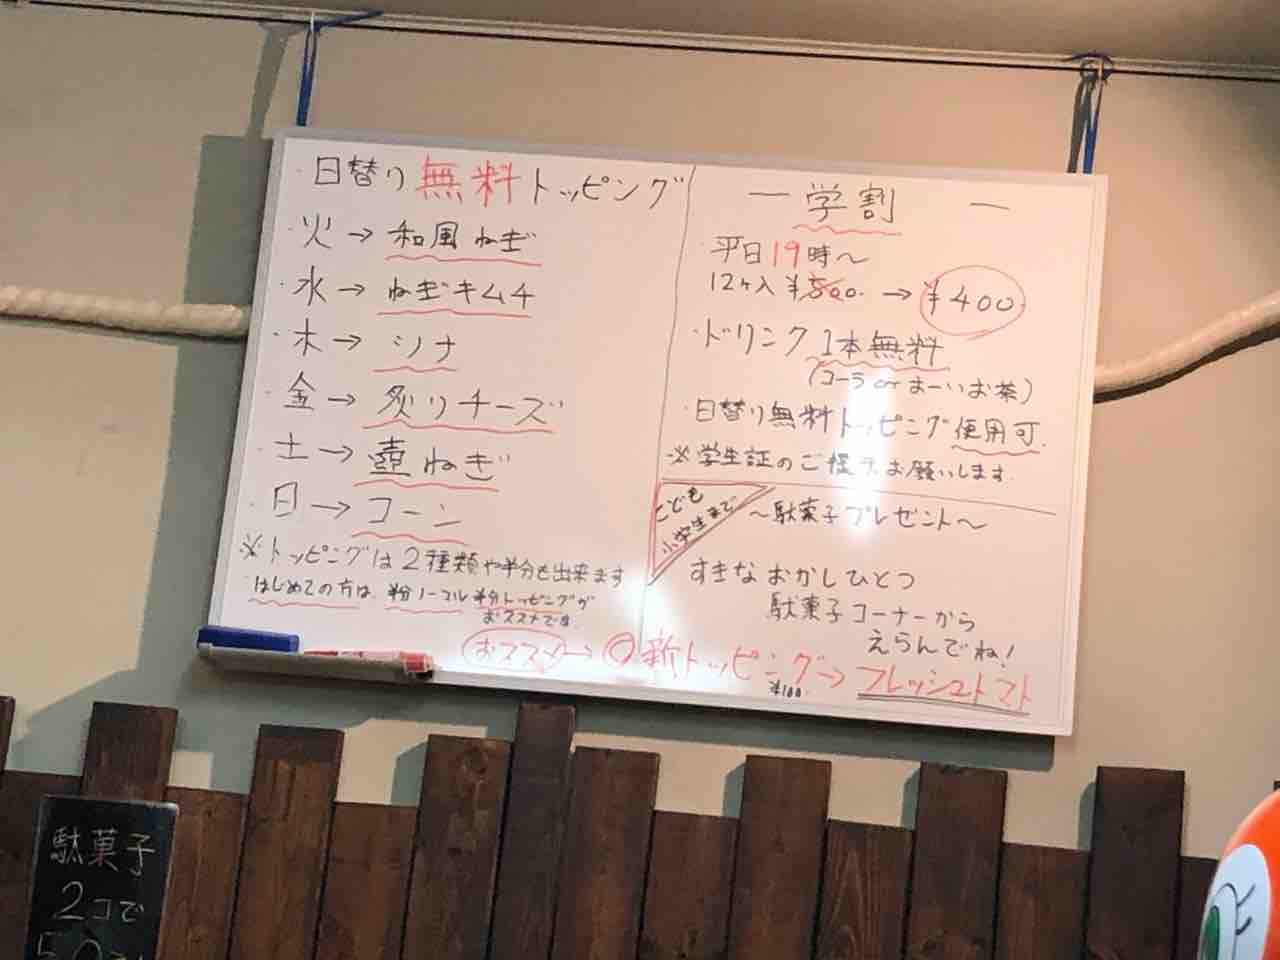 ・日替り無料トッピング
・火→和風ねぎ
・水→ねぎキムチ
・木→ツナ
・金→炙りチーズ
・土→壺ねぎ
・日→コーン
※トッピングは2種類や半分も出来ます
はじめての方は、半分ノーマル半分トッピングが
おススメです。
ー学割ー
・平日19時〜
12ヶ入¥500.→¥400
・ドリンク1本無料
(コーラorおーいお茶)
・日替り無料トッピング使用可.
※学生証のご提示お願いします.
こども
小学生まで
〜駄菓子プレゼント〜
すきなおかしひとつ
駄菓子コーナーから
えらんでね!
おススメ→◎新トッピング→フレッシュトマト
¥100.
駄菓子
2コで